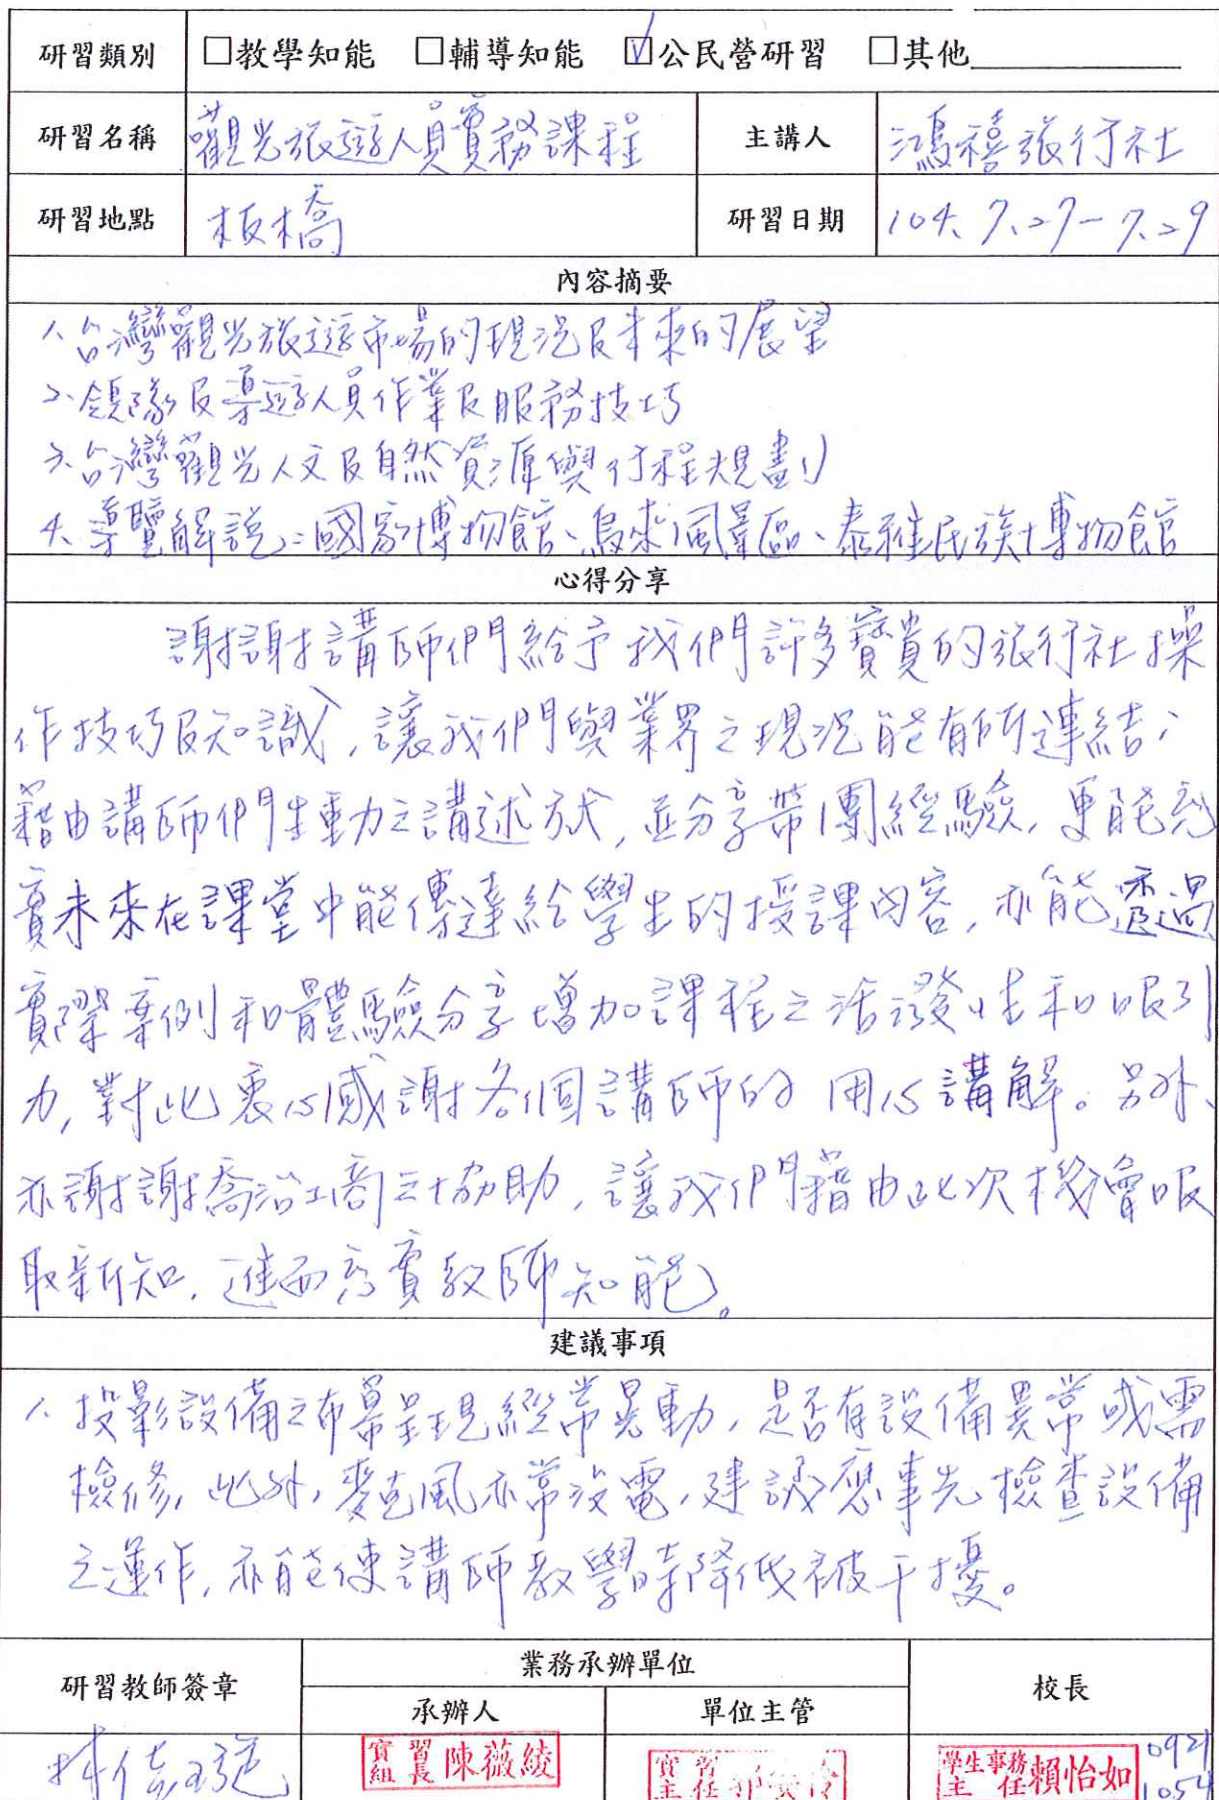 研習類別 □教學知能 □輔導知能 ☑公民營研習 □其他
研習名稱 觀光旅遊人員實務課程 主講人 鴻禧旅行社
研習地點 板橋 研習日期 104.7.27-7.29
內容摘要
1.台灣觀光旅遊市場的現況及未來的展望
2.領隊及導遊人員作業及服務技巧
3.台灣觀光人文及自然資源與行程規劃
4.導覽解說:國家博物館、烏來風景區、泰雅民族博物館
心得分享
謝謝講師們給予我們許多寶貴的旅行社操
作技巧及知識,讓我們與業界之現況能有所連結;
藉由講師們生動之講述方式,並分享帶團經驗,更能充
實未來在課堂中能傳達給學生的授課內容,亦能透過
實際案例和體驗分享增加課程之活潑性和吸引
力,對此衷心感謝各個講師的用心講解。另外、
亦謝謝喬治工商之協助,讓我們藉由此次機會吸
取新知,進而充實教師知能。
建議事項
1.投影設備之布幕呈現經常晃動,是否有設備異常或需
檢修,此外,麥克風亦常沒電,建議應事先檢查設備
之運作,亦能使講師教學時降低被干擾。
研習教師簽章 業務承辦單位 校長
承辦人 單位主管
林佳
實習組長 陳薇綾 實習主任 學生事務主任 賴怡如 0921
1054